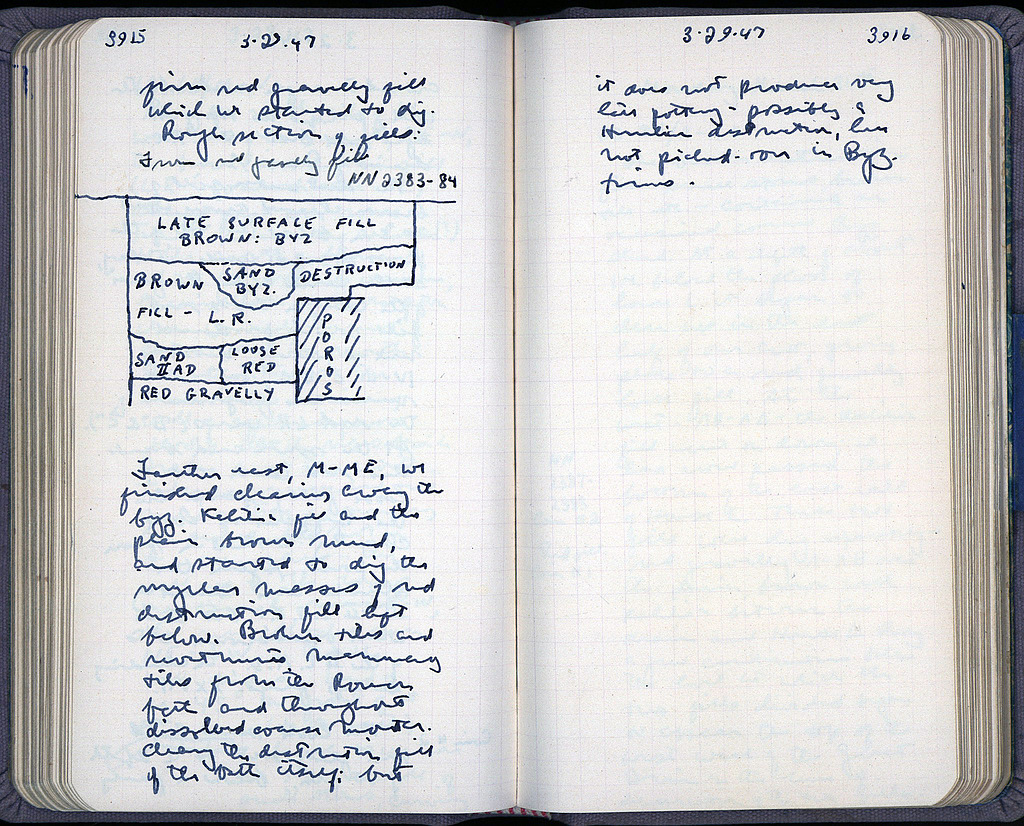 3915
3-29-47
firm red gravelly fill
which we started to dig.
Rough section of fills:
From red gravelly fill
NN 2383-84
LATE SURFACE FILL
BROWN: BYZ
BROWN
FILL - L.R.
SAND
BYZ.
DESTRUCTION
SAND
II AD
LOOSE
RED
POROS
RED GRAVELLY
Farther east, M-ME, we
finished clearing away the
byz. pit and the
plain brown
and started to dig the
masses of red
destruction fill left
below. Broken tiles and
mammary
tiles from the Roman
bath and throughout
dissolved coarse mortar.
Clearly the destruction fill
of the bath itself; but
3-29-47
3916
it does not produce very
late pottery - possibly a
Herulian destruction, but
not picked over in Byz.
times.